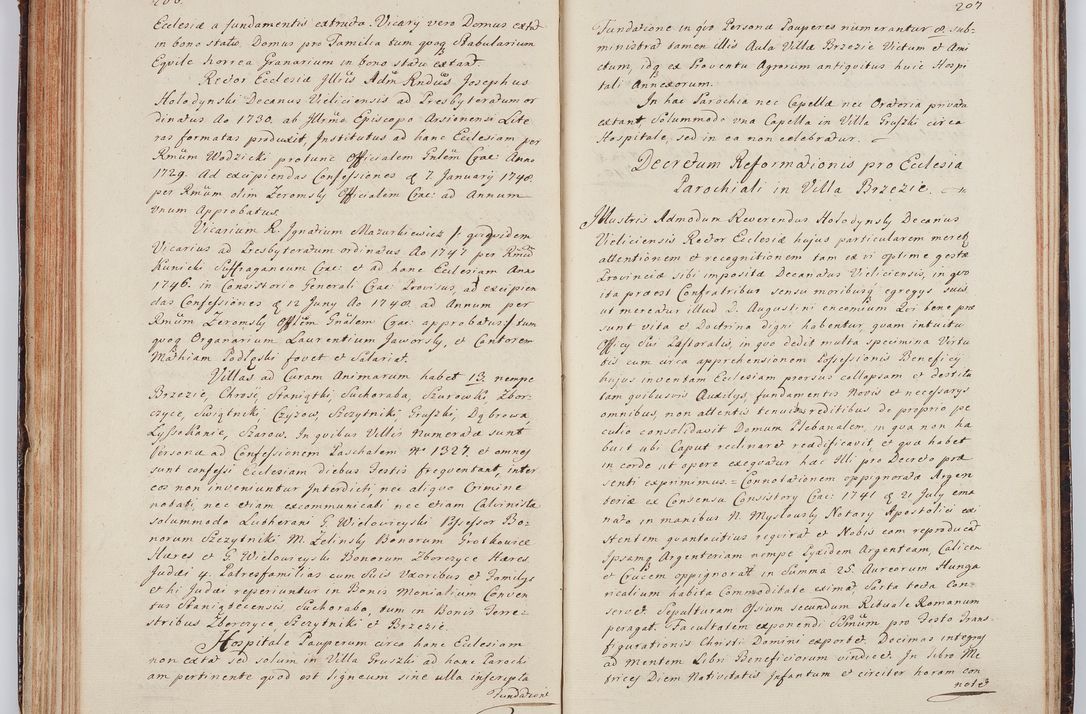 206.
Ecclesiæ a fundamentis extructa. Vicary vero Domus extat
in bono statu. Domus pro Familia tum quoq Stabularium
Equile horrea Granarium in bono statu extant.
Rector Ecclesiæ Illris Adm̃ Rndus Josephus
Holodynski Decanus Vieliciensis ad Presbyteratum or
dinatus Ao 1730. ab Illrmo Episcopo Arsionense Lite
ras formatas produxit, Institutus ad hanc Ecclesiam per
Rmum Wodzicki protunc Officialem Gnlem Crac: Anno
1729. Ad excipiendas Confessiones d 7 January 1748
per Rmum olim Zeromsky Officialem Crac: ad Annum
vnum Approbatus.
Vicarium R. Ignatium Mazurkiewicz qui quidem
Vicarius ad Presbyteratum ordinatus Ao 1747 per Rmũ
Kunicki Suffraganeum Crac: et ad hanc Ecclesiam Anno
1746. in Consistorio Generali Crac: Provisus, ad excipien
das Confessiones d 12 Juny Ao 1748. ad Annum per
Rmum Zeromsky Offlem Gnalem Crac: approbatus, tum
quoq Organarium Laurentium Jaworsky, et Cantorem
Mathiam Podlęski fovet et Salariat.
Villas ad Curam Animarum habet 13. nempe
Brzezie, Chrość, Staniątki, Suchoraba, Szurowki, Zbor-
czyce, Swiątniki, Czyzow, Szczytniki Gruszki, Dąbrowa,
Lyssokanie, Szarow. In quibus Villis Numeratæ sunt
Personæ ad Confessionem Paschalem No 1327 et omnes
sunt confessi Ecclesiam diebus Festis frequentant, inter
eos non inveniuntur Interdicti, nec aliquo Crimine
notati, nec etiam excommunicati nec etiam Calvinistæ
solummodo Lutherani G. Wielowieyski Possessor Bo-
norum Szczytniki M. Zelinsky Bonorum Grotkowice
Hæres et G. Wielowieyski Bonorum Zborczyce Hæres
Judæi 4. Patresfamilias cum Suis Uxoribus et Familys
et hi Judæi reperiuntur in Bonis Monialium Conven
tus Staniątecensis, Suchoraba, tum in Bonis Terre-
stribus Zborczyce, Szczytniki et Brzezie.
Hospitale Pauperum circa hanc Ecclesiam
non extat sed solum in Villa Gruszki ad hanc Parochi
am pertinente quod est ligneum sine ulla inscripta
Fundatione
207
Fundatione in quo Personæ Pauperes numerantur 8. sub-
ministrat tamen illis Aula Villæ Brzezie Victum et Ami
ctum, idq ex Proventu Agrorum antiquitus huic Hospi
tali Annexorum.
In hac Parochia nec Capellæ nec Oratoria privata
extant, Solummodo vna Capella in Villa Gruszki circa
Hospitale, sed in ea non celebratur.
Decretum Reformationis pro Ecclesia
Parochiali in Villa Brzezie.
Illustris Admodum Reverendus Holodynsky Decanus
Vieliciensis Rector Ecclesiæ hujus particularem meret
attentionem et recognitionem tam ex vi optime gestæ
Provinciæ sibi impositæ Decanatus Vieliciensis, in quo
ita præest Confratribus sensu moribusq egregys suis
ut mereatur illud D. Augustini encomium Qui bene præ
sunt vita et Doctrina digni habentur, quam intuitu
Officy Sui Pastoralis, in quo dedit multa specimina Virtu
tis cum circa apprehensionem Possessionis Beneficy
hujus inventam Ecclesiam prorsus collapsam et destitu
tam quibusvis Auxilys, fundamentis Novis et necessarys
omnibus, non attentis tenuibus reditibus de proprio pe
culio consolidavit Domum Plebanalem, in qua non ha
buit ubi Caput reclinaret reædificavit, et quæ habet
in corde ut opere exequatur hac Illi pro Decreto præ
senti exprimimus = Connotationem oppignoratæ Argen
teriæ ex Consensu Consistory Crac: 1741 d 21 July ema
nato in manibus N. Myslowsky Notary Apostolici exi
stentem quantocitius requirat et Nobis eam reproducat
Ipsamq Argenteriam nempe Pyxidem Argenteam, Calicem
et Crucem oppignorat in Summa 25 Aureorum Hunga
ricalium habita Commoditate eximat, Sarta tecta Con-
servet, Sepulturam Ossium secundum Rituale Romanum
peragat. Facultatem exponendi Sssmum pro Festo Trans-
figurationis Christi Domini exportet, Decimas integras
ad mentem Libri Beneficiorum vindicet, In libro Me
trices Diem Nativitatis Infantum et circiter horam con
notet